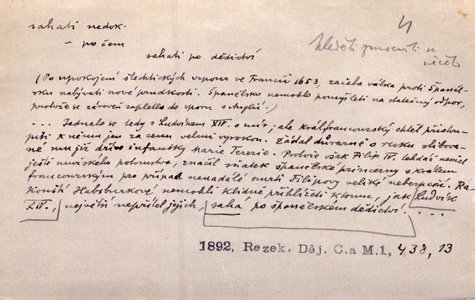 sahati nedok.
– po čem
hleděti zmocniti se
něčeho
sahati po dědictví
(Po uspokojení šlechtických vzpour ve Francii 1653, začala válka proti Španěl-
sku nabývati nové prudkosti. Španělsko nemohlo pomýšleti na statečný odpor,
protože se zároveň zapletlo do sporu s Anglií.)
... Jednalo se tedy s Ludvíkem XIV. o mír, ale král francouzský chtěl přistou-
piti k němu jen za cenu velmi vysokou. Žádal důvěrně o ruku
mu již dříve infantky Marie Terezie. Protože však Filip IV. tehdáž neměl
ještě mužského potomstva, značil sňatek španělské princezny s králem
francouzským pro případ nenadálé smrti Filipovy veliké nebezpečí. Ra-
kouští Habsburkové nemohli klidně přihlížeti k tomu, jak Ludvík
XIV., největší nepřítel jejich, sahá po španělském dědictví. ...
1892, Rezek. Děj. Č. a M. 1, 438, 13